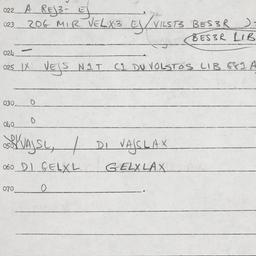 022 A REJ3- EJ
023 20G MIR VELX3 EJ/VILST3 BES3R )-
BES3R LIB
024 -
025 IX VEJS N1T C1 DU VOLSTOS LIB
030 0
040 0
050 VAJSL, / DI VAJSLAX
060 DI GELXL GELXLAX
070 0